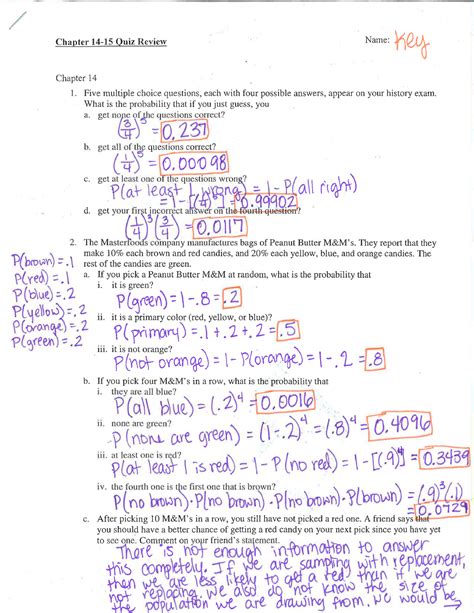 Chapter 14-15 Quiz Review
Name: Key
Chapter 14
1. Five multiple choice questions, each with four possible answers, appear on your history exam.
What is the probability that if you just guess, you
a. get none of the questions correct?
(3/4)^5 = 0.237
b. get all of the questions correct?
(1/4)^5 = 0.00098
c. get at least one of the questions wrong?
P(at least 1 wrong) = 1 - P(all right)
= 1 - (1/4)^5 = 0.99902
d. get your first incorrect answer on the fourth question?
(1/4)^3 (3/4) = 0.0117
2. The Masterfoods company manufactures bags of Peanut Butter M&M's. They report that they
make 10% each brown and red candies, and 20% each yellow, blue, and orange candies. The
rest of the candies are green.
P(brown) = .1
P(red) = .1
P(blue) = .2
P(yellow) = .2
P(orange) = .2
P(green) = .2
a. If you pick a Peanut Butter M&M at random, what is the probability that
i. it is green?
P(green) = 1 - .8 = .2
ii. it is a primary color (red, yellow, or blue)?
P(primary) = .1 + .2 + .2 = .5
iii. it is not orange?
P(not orange) = 1 - P(orange) = 1 - .2 = .8
b. If you pick four M&M's in a row, what is the probability that
i. they are all blue?
P(all blue) = (.2)^4 = 0.0016
ii. none are green?
P(none are green) = (1-.2)^4 = (.8)^4 = 0.4096
iii. at least one is red?
P(at least 1 is red) = 1 - P(no red) = 1 - [(.9)^4] = 0.3439
iv. the fourth one is the first one that is brown?
P(no brown) · P(no brown) · P(no brown) · P(brown) = (.9)^3 (.1)
= 0.0729
c. After picking 10 M&M's in a row, you still have not picked a red one. A friend says that
you should have a better chance of getting a red candy on your next pick since you have yet
to see one. Comment on your friend's statement.
There is not enough information to answer
this completely. If we are sampling with replacement,
then we are less likely to get a red than if we are
not replacing. We also do not know the size of
the population we are drawing from. We would be